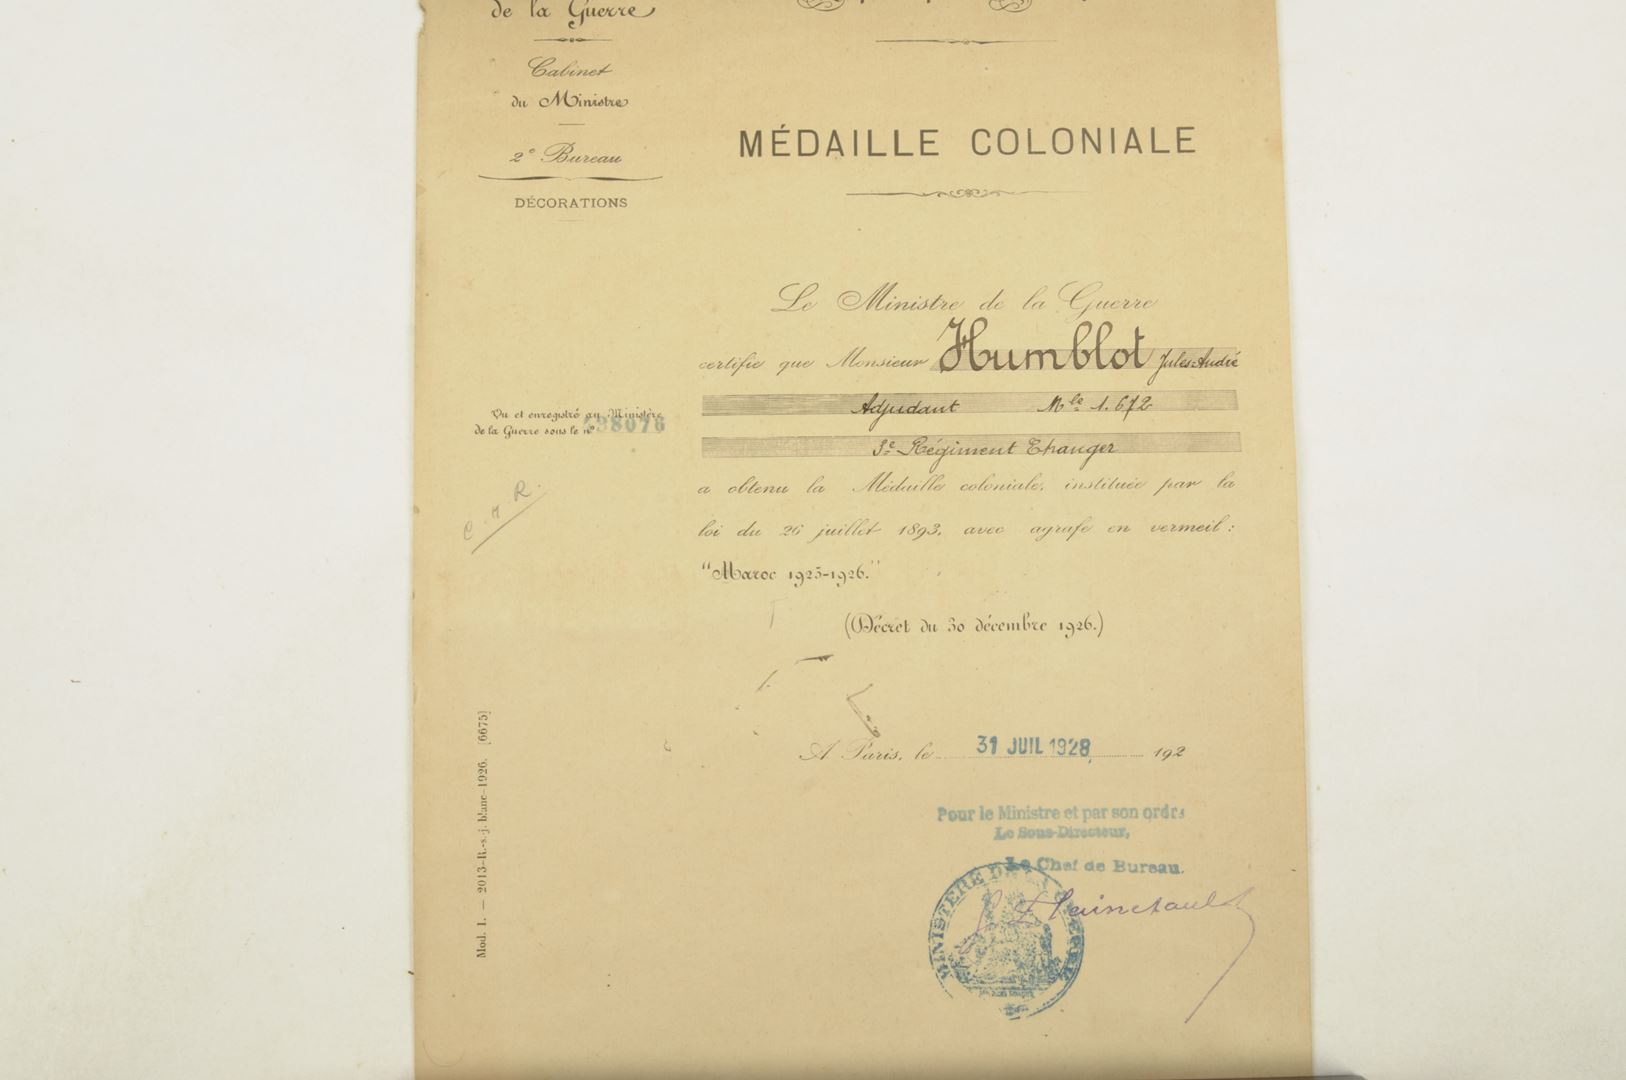 de la Guerre
Cabinet
du Ministre
2e Bureau
DÉCORATIONS
MÉDAILLE COLONIALE
Le Ministre de la Guerre
certifie que Monsieur Humblot Jules-André
Adjudant Mle 1.672
3e Régiment Etranger
Vu et enregistré au Ministère
de la Guerre sous le n° 38076
a obtenu la Médaille coloniale, instituée par la
loi du 26 juillet 1893, avec agrafe en vermeil :
"Maroc 1925-1926."
(Décret du 30 décembre 1926.)
A Paris, le 31 JUIL 1928 192
Pour le Ministre et par son ordre
Le Sous-Directeur,
Le Chef de Bureau.
MINISTÈRE DE LA GUERRE
Mod. 1. — 2013-R.-s.-j. blanc-1926. [6675]